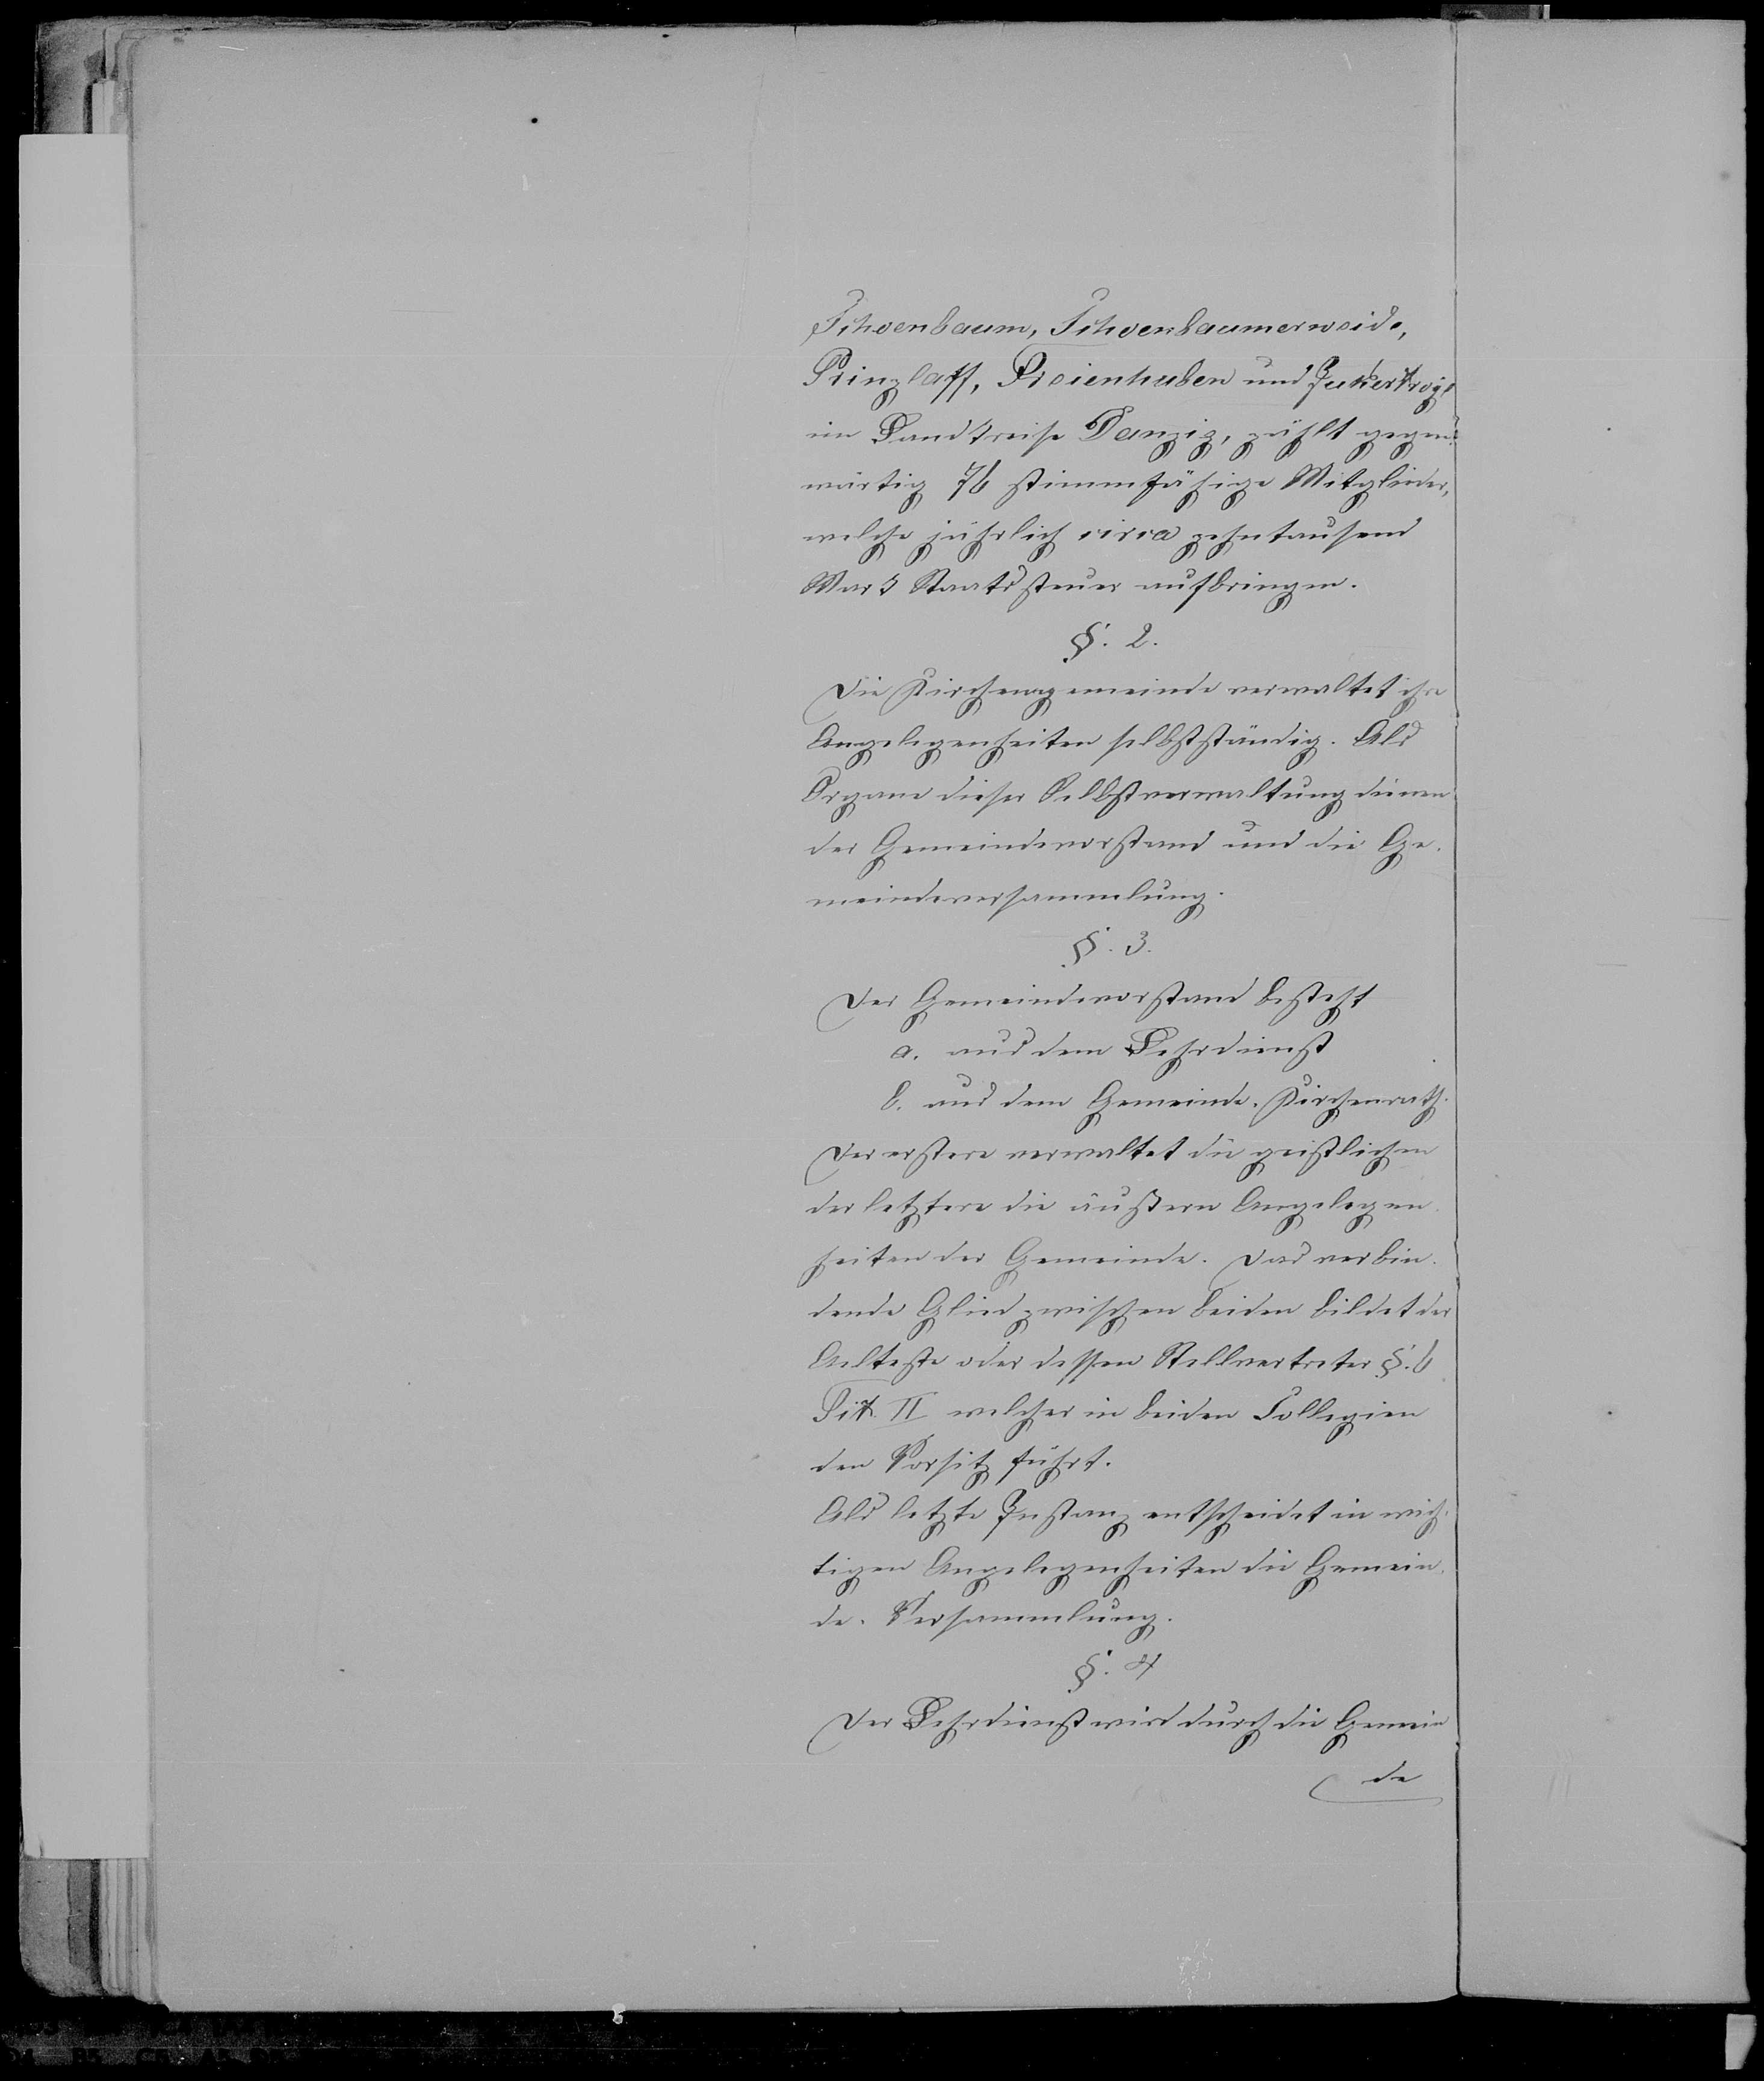 Schoenbaum, Schoenbaumerweide,
Prinzlaff, Freienhuben und
im Landkreise Danzig, zählt gegen¬
wärtig 76 stimmfähige Mitglieder,
welche jährlich circa zehntausend
Mark Staatssteuer aufbringen.
§. 2.
Die Kirchengemeinde verwaltet ihre
Angelegenheiten selbstständig. Als
Organe dieser Selbstverwaltung dienen
der Gemeindevorstand und die Ge-
meindeversammlung.
§. 3.
Der Gemeindevorstand besteht
a. aus dem Lehrdienst
b. aus dem Gemeinde-Kirchenrath.
Der erstere verwaltet die geistlichen
der letztere die äußern Angelegen-
heiten der Gemeinde. Das verbin-
dende Glied zwischen beiden bildet der
Aelteste oder dessen Stellvertreter §. 6
Tit. II welcher in beiden Collegien
den Vorsitz führt.
Als letzte Instanz entscheidet in wich-
tigen Angelegenheiten die Gemein-
de-Versammlung.
§. 4
Der Lehrdienst wird durch die Gemein
de